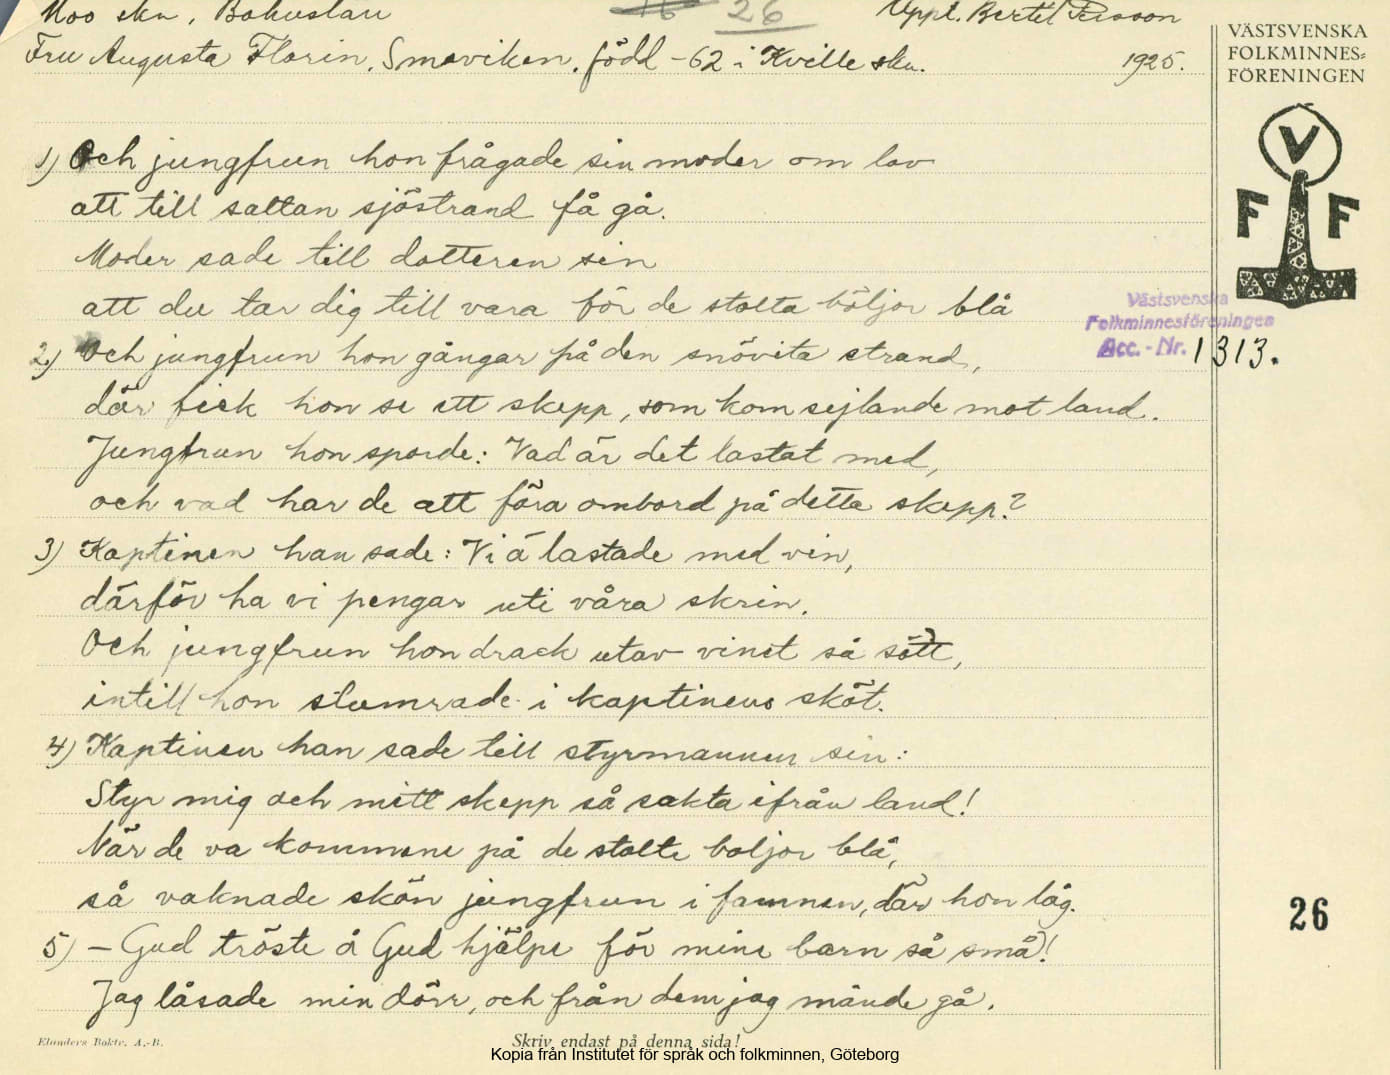 Moo skn, Bohuslän
16 26
Uppt. Bertel Persson
Fru Augusta Florin, Smeviken, född -62 i Kville skn. 1925.
VÄSTSVENSKA
FOLKMINNES=
FÖRENINGEN
V
F F
1) Och jungfrun hon frågade sin moder om lov
att till saltan sjöstrand få gå.
Moder sade till dotteren sin
att du tar dig till vara för de stolta böljor blå
Västsvenska
Folkminnesföreningen
Acc.-Nr. 1313.
2) Och jungfrun hon gångar på den snövita strand,
där fick hon se ett skepp, som kom sejlande mot land.
Jungfrun hon sporde: Vad är det lastat med,
och vad har de att föra ombord på detta skepp?
3) Kaptinen han sade: Vi ä lastade med vin,
därför ha vi pengar uti våra skrin.
Och jungfrun hon drack utav vinet så sött,
intill hon slumrade i kaptinens sköt.
4) Kaptinen han sade till styrmannen sin:
Styr mig och mitt skepp så sakta ifrån land!
När de va kommene på de stolte boljor blå,
så vaknade skön jungfrun i famnen, där hon låg.
26
5) — Gud tröste å Gud hjälpe för mine barn så små!
Jag låsade min dörr, och från dem jag månde gå.
Elanders Boktr. A.-B.
Skriv endast på denna sida!
Kopia från Institutet för språk och folkminnen, Göteborg